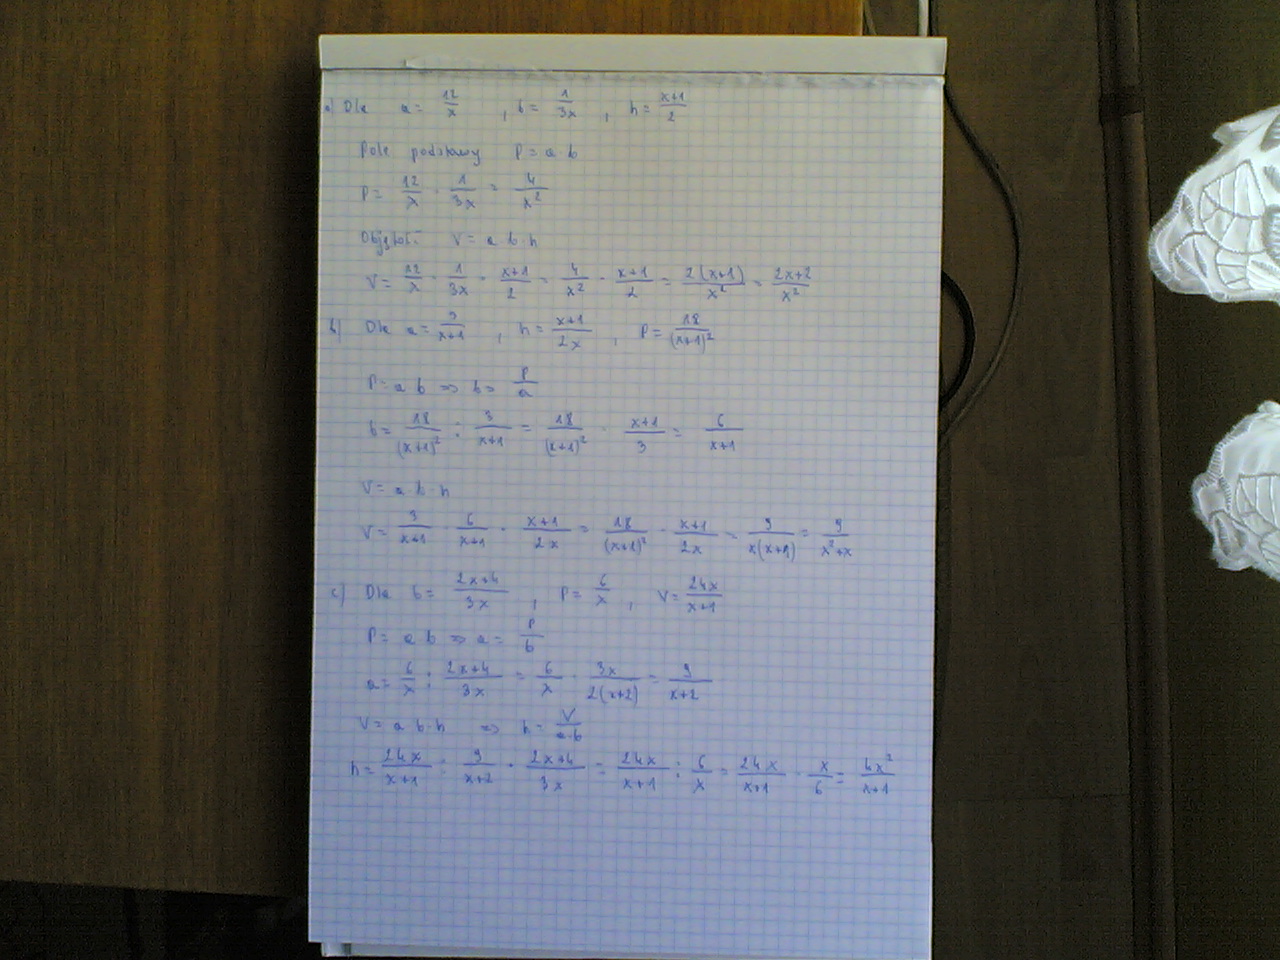 a) Dla a = 12/x , b = 1/3x , h = x+1/2
Pole podstawy P = a·b
P = 12/x · 1/3x = 4/x²
Objętość V = a·b·h
V = 12/x · 1/3x · x+1/2 = 4/x² · x+1/2 = 2(x+1)/x² = 2x+2/x²
b) Dla a = 3/x+1 , h = x+1/2x , P = 18/(x+1)²
P = a·b => b = P/a
b = 18/(x+1)² : 3/x+1 = 18/(x+1)² · x+1/3 = 6/x+1
V = a·b·h
V = 3/x+1 · 6/x+1 · x+1/2x = 18/(x+1)² · x+1/2x = 9/x(x+1) = 9/x²+x
c) Dla b = 2x+4/3x , P = 6/x , V = 24x/x+1
P = a·b => a = P/b
a = 6/x : 2x+4/3x = 6/x · 3x/2(x+2) = 9/x+2
V = a·b·h => h = V/a·b
h = 24x/x+1 : 9/x+2 · 2x+4/3x = 24x/x+1 : 6/x = 24x/x+1 · x/6 = 4x²/x+1